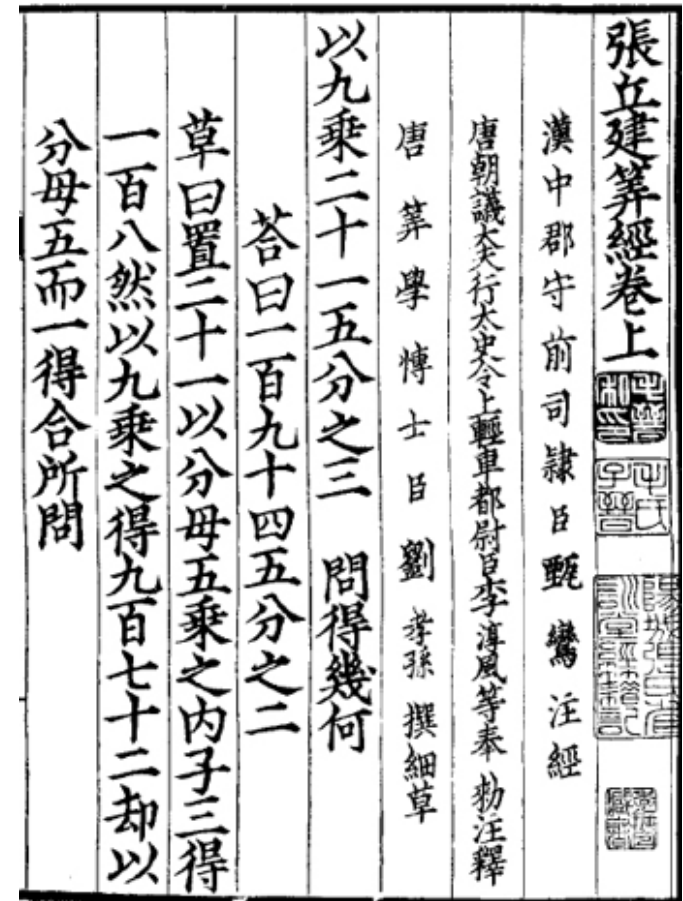 張丘建筭經卷上
漢中郡守前司隸臣甄鸞注經
唐朝議大夫行太史令上輕車都尉臣李淳風等奉勑注釋
唐筭學博士臣劉孝孫撰細草
以九乘二十一五分之三 問得幾何
荅曰一百九十四五分之二
草曰置二十一以分母五乘之内子三得
一百八然以九乘之得九百七十二却以
分母五而一得合所問